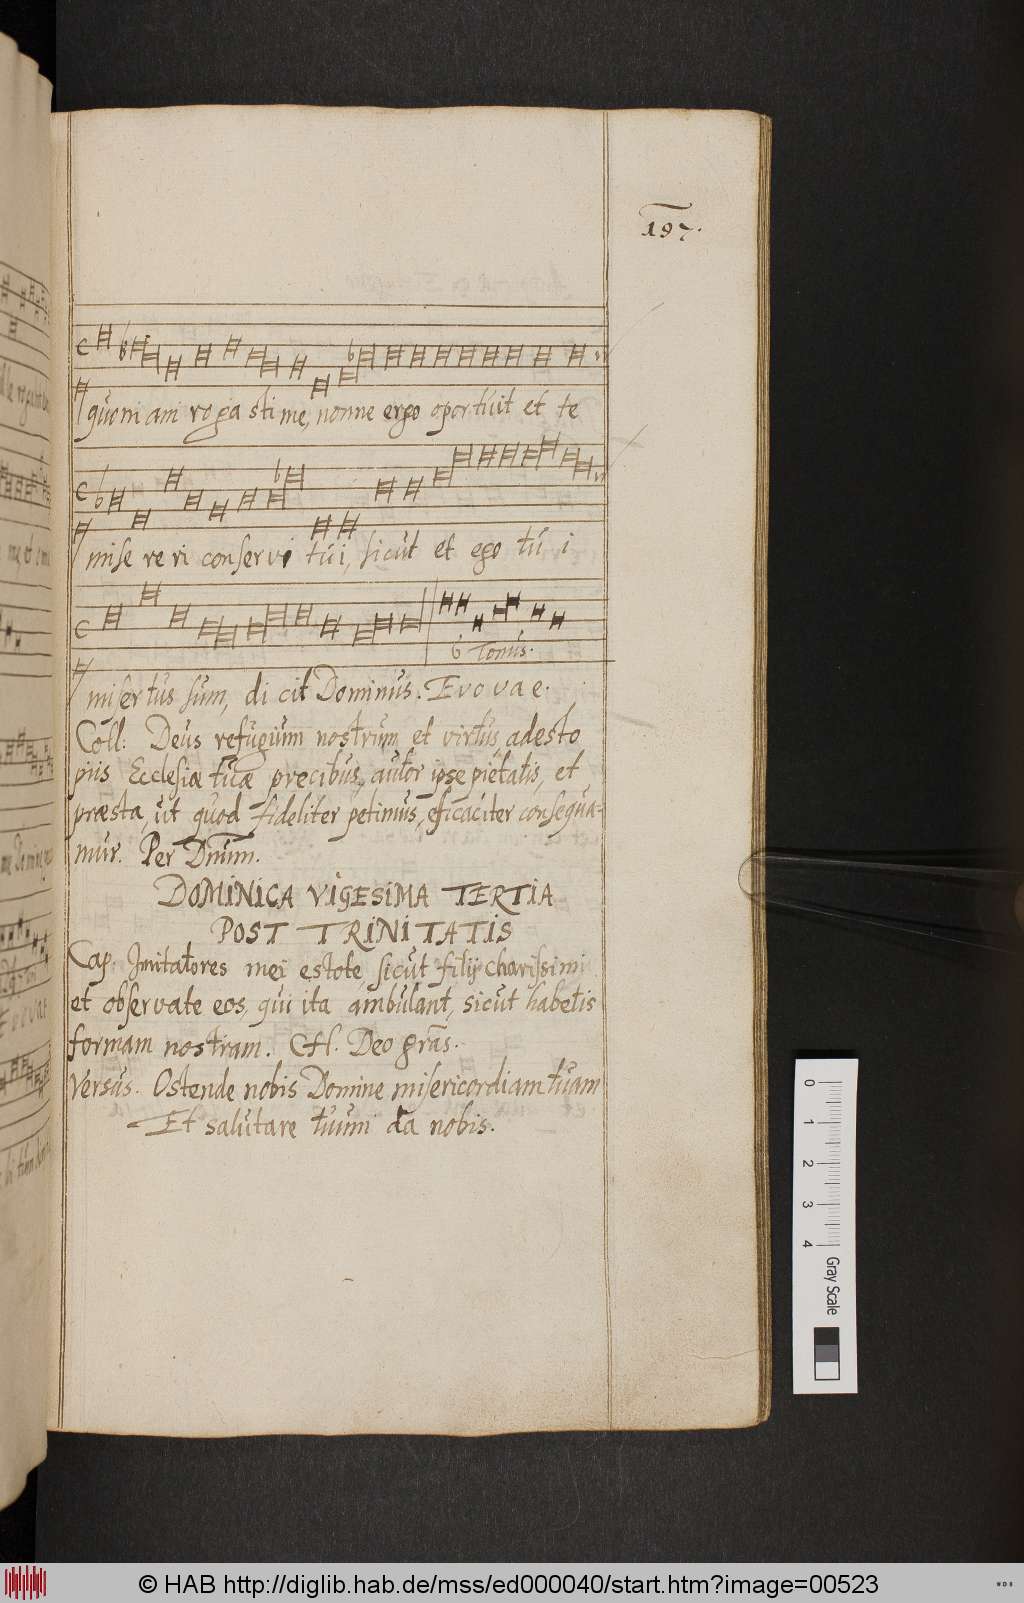 197.
quoniam rogasti me, nonne ergo oportuit et te
misereri conservi tui, sicut et ego tui
6 Tonus.
misertus sum, dicit Dominus. Evovae.
Coll: Deus refugium nostrum et virtus, adesto
piis Ecclesiæ tuæ precibus, autor ipse pietatis, et
præsta, ut quod fideliter petimus, eficaciter consequa-
mur. Per Dnum.
DOMINICA VIGESIMA TERTIA
POST TRINITATIS
Cap. Imitatores mei estote, sicut filij charissimi
et observate eos, qui ita ambulant, sicut habetis
formam nostram. Deo gras.
Versus. Ostende nobis Domine misericordiam tuam
Et salutare tuum da nobis.
0 1 2 3 4 Gray Scale
© HAB http://diglib.hab.de/mss/ed000040/start.htm?image=00523